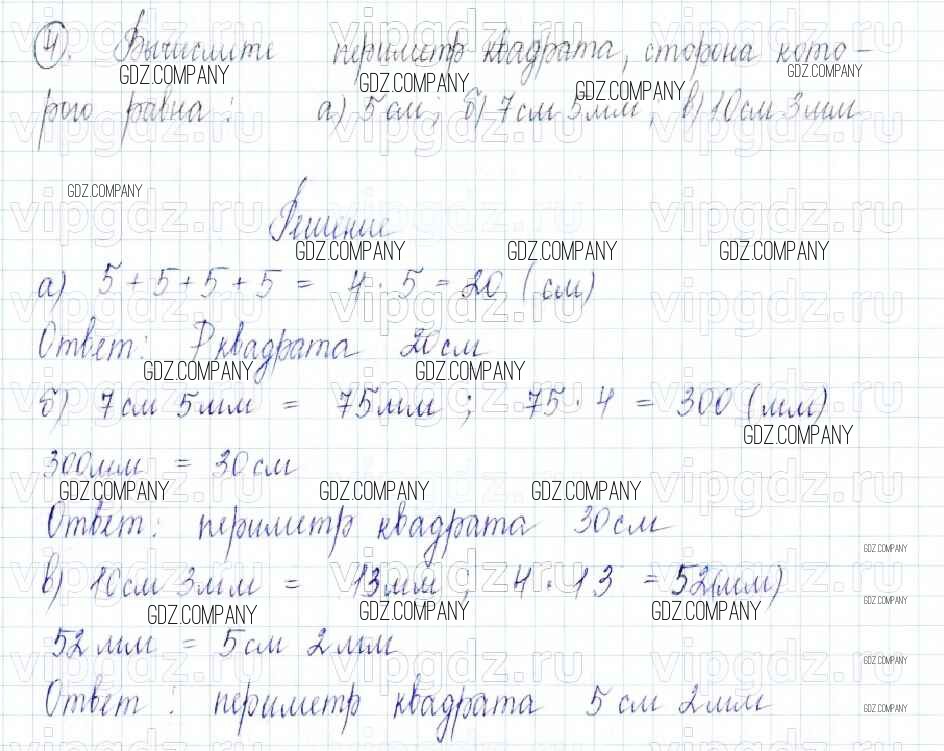 4). Вычислите периметр квадрата, сторона кото-
рого равна: а) 5 см; б) 7 см 5 мм, в) 10 см 3 мм
Решение
а) 5 + 5 + 5 + 5 = 4 · 5 = 20 (см)
Ответ: Р квадрата 20 см
б) 7 см 5 мм = 75 мм; 75 · 4 = 300 (мм)
300 мм = 30 см
Ответ: периметр квадрата 30 см
в) 10 см 3 мм = 13 мм; 4 · 13 = 52 (мм)
52 мм = 5 см 2 мм
Ответ: периметр квадрата 5 см 2 мм
GDZ.COMPANY
vipgdz.ru